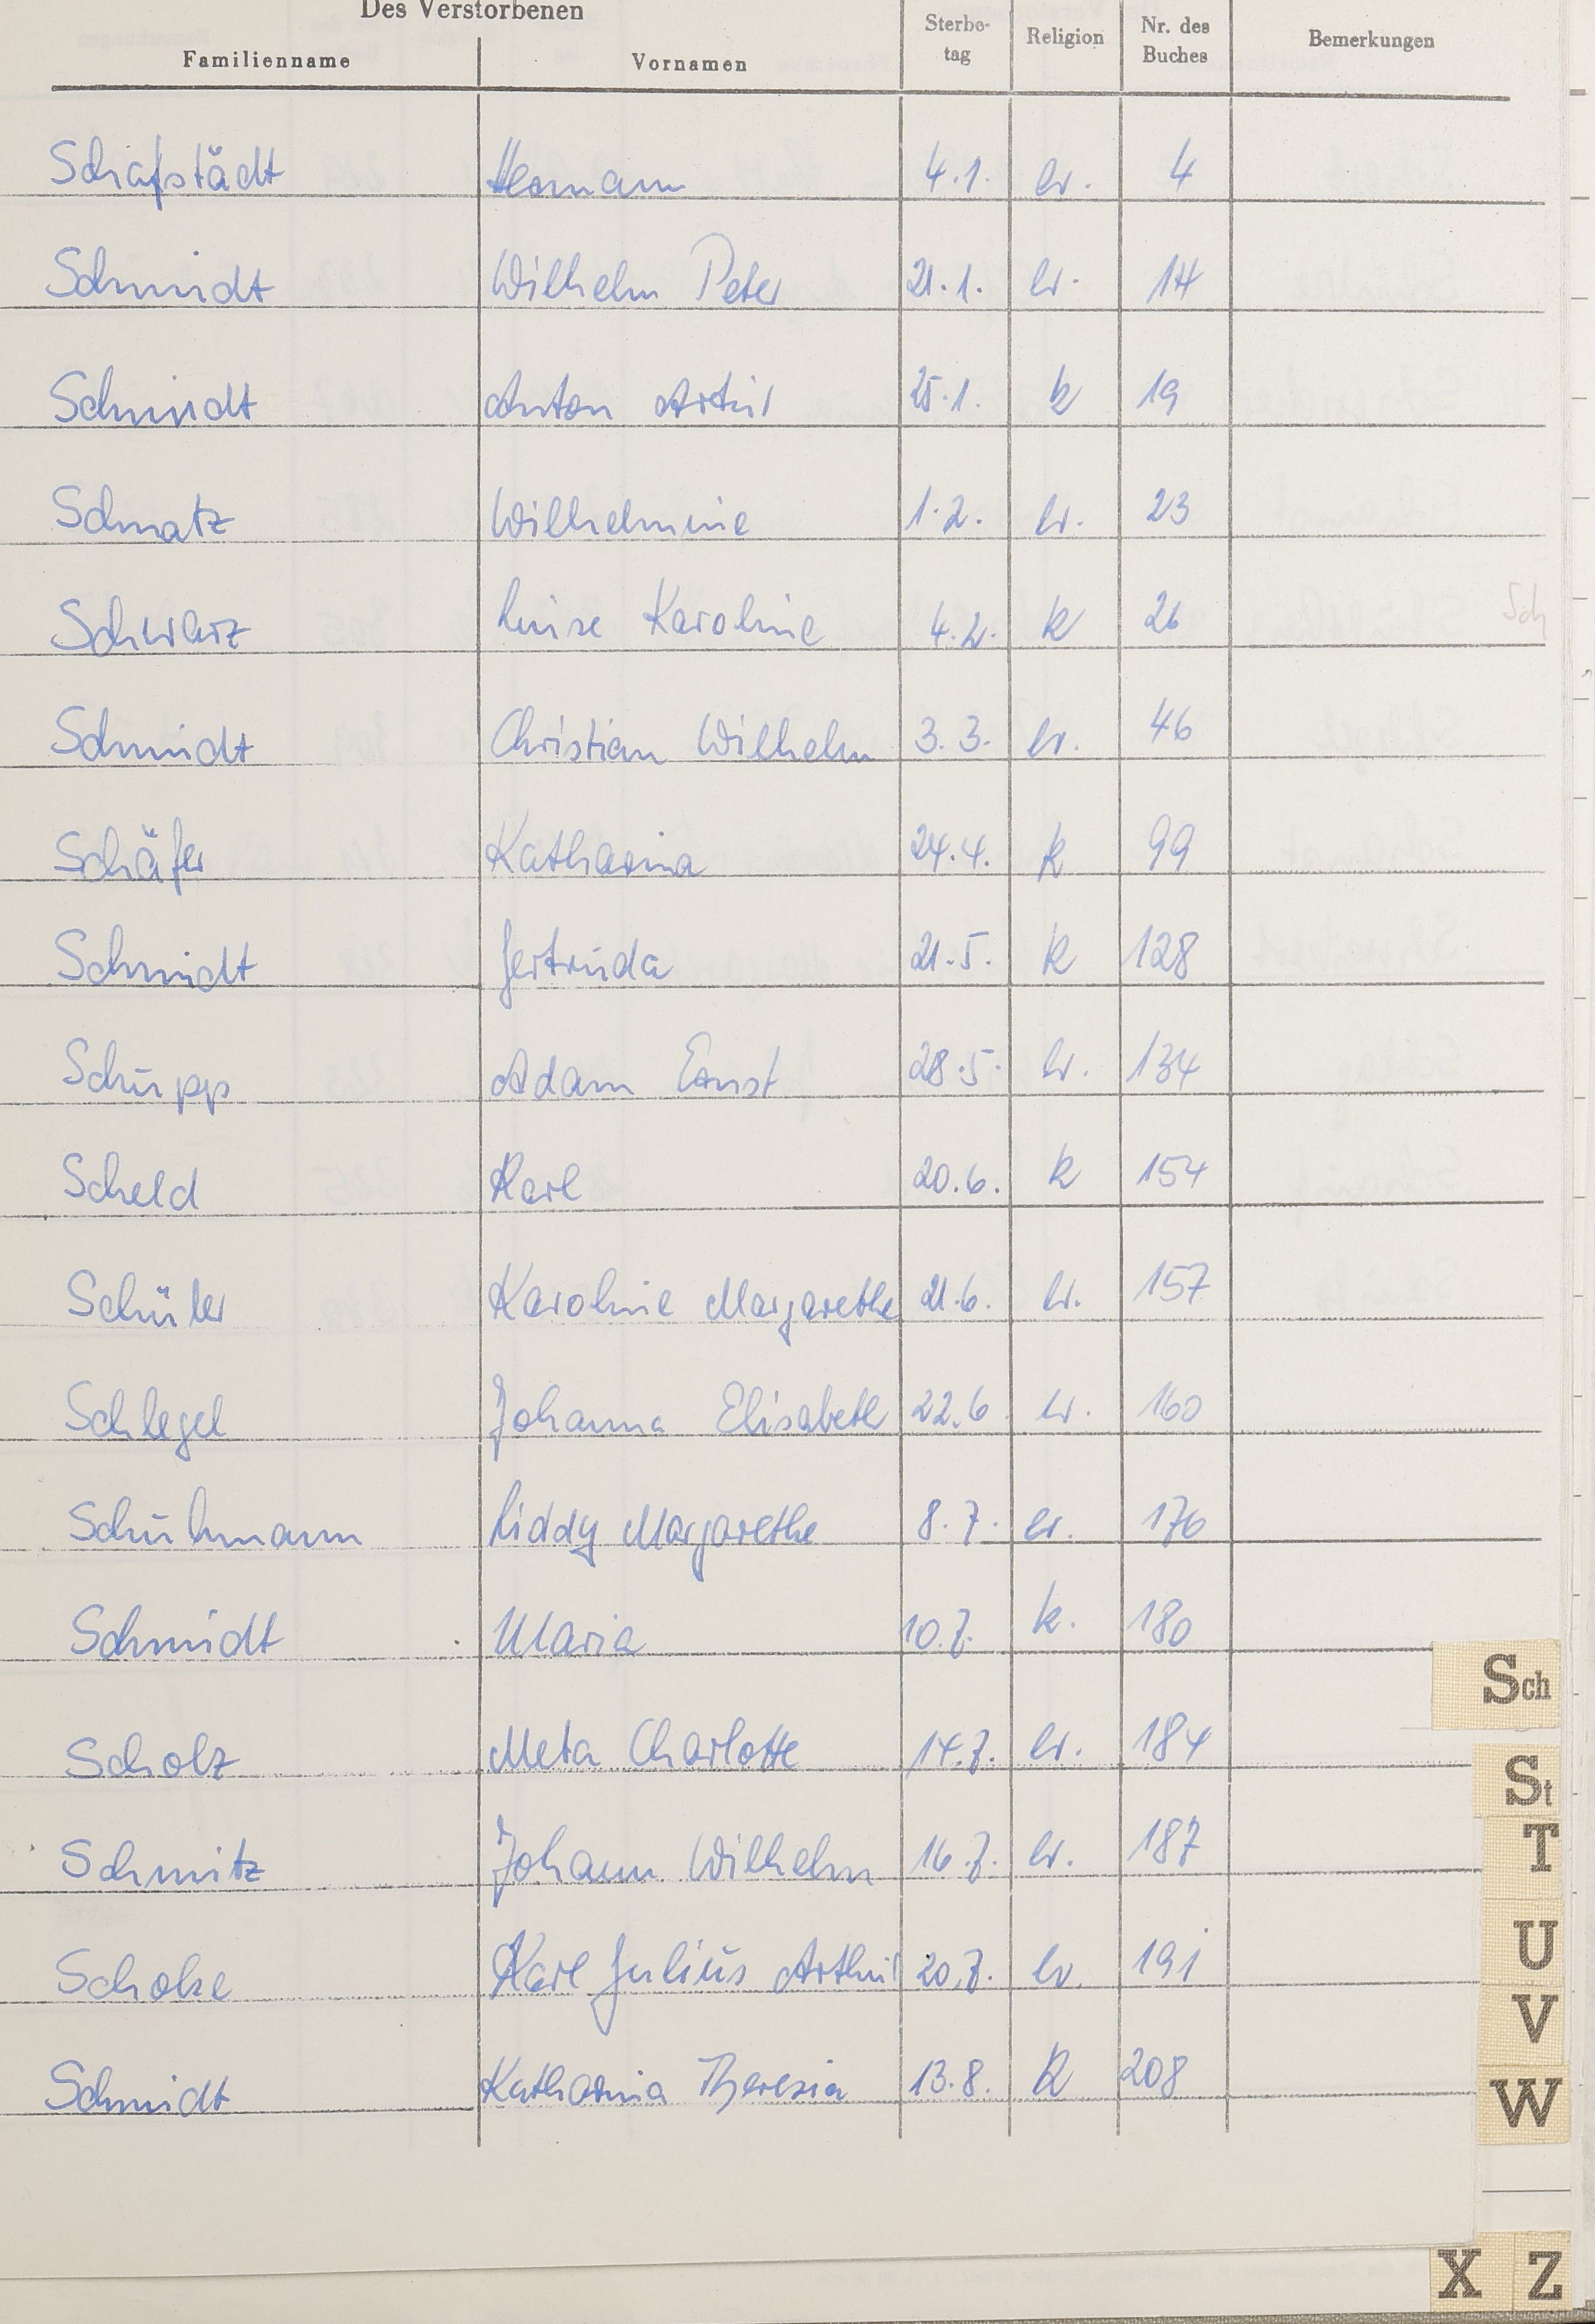 Des Verstorbenen
Familienname Vornamen Sterbe-tag Religion Nr. des Buches Bemerkungen
Schafstädt Hermann 4.1. ev. 4
Schmidt Wilhelm Peter 21.1. ev. 14
Schmidt Anton Artur 25.1. k 19
Schmatz Wilhelmine 1.2. ev. 23
Schwarz Luise Karoline 4.2. k 26
Sch
Schmidt Christian Wilhelm 3.3. ev. 46
Schäfer Katharina 24.4. k 99
Schmidt Gertruda 21.5. k 128
Schupp Adam Ernst 28.5. ev. 134
Scheld Karl 20.6. k 154
Schüler Karoline Margarethe 21.6. ev. 157
Schlegel Johanna Elisabeth 22.6 ev. 160
Schuhmann Liddy Margarethe 8.7. ev. 176
Schmidt Maria 10.7. k. 180
Scholz Meta Charlotte 14.7. ev. 184
Schmitz Johann Wilhelm 16.7. ev. 187
Scholze Karl Julius Arthur 20.7. ev. 191
Schmidt Katharina Theresia 13.8. k 208
Sch
St
T
U
V
W
X Z